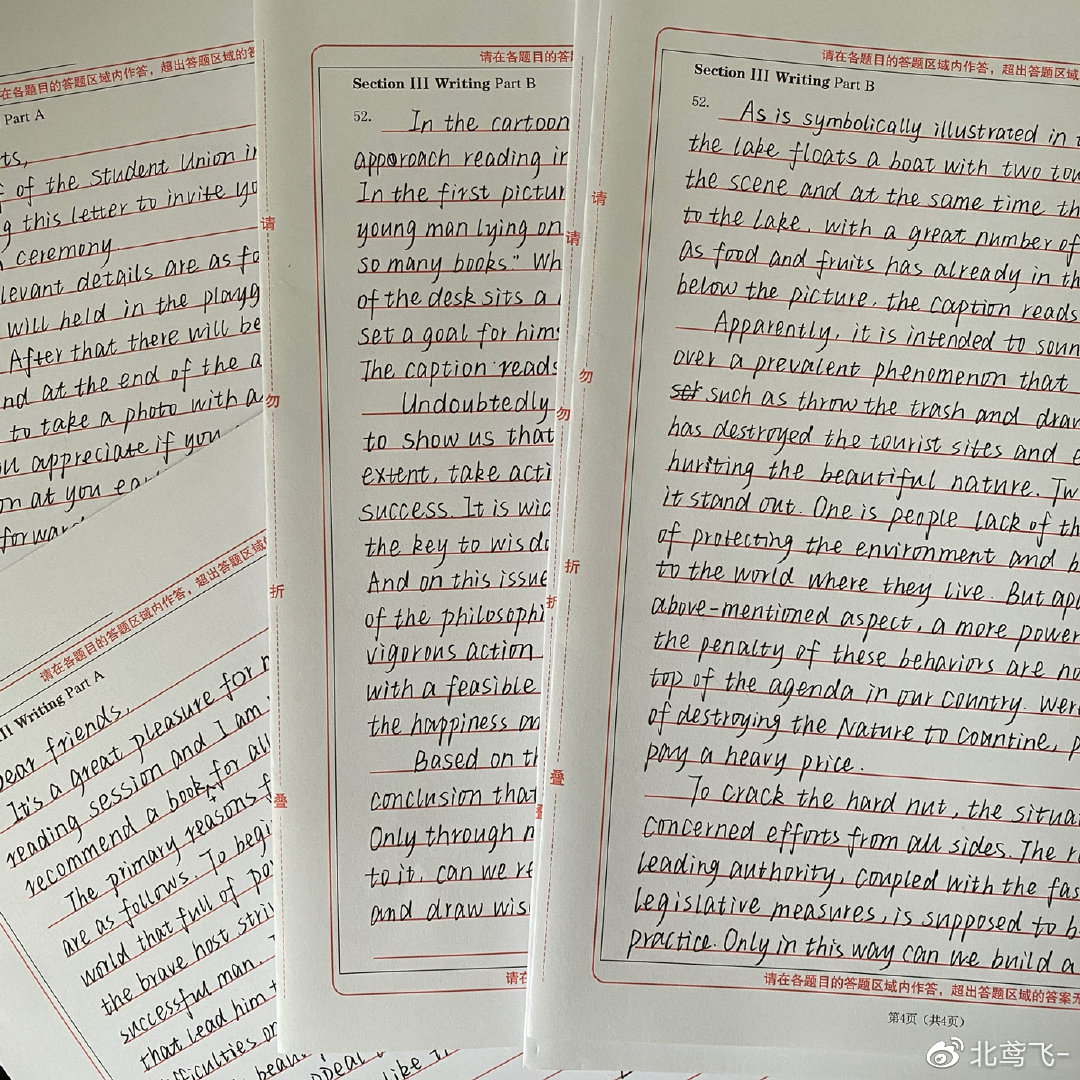 请在各题目的答题区域内作答，超出答题区域的答
Part A
of the Student Union in
this letter to invite yo
ceremony.
details are as fo
will held in the playg
After that there will be
nd at the end of the a
to take a photo with a
appreciate if you
on at you ea
forward
请在各题目的答题区域内作答，超出答题区域的答
Writing Part A
Dear friends,
It's a great pleasure for m
reading session and I am
recommend a book for all
The primary reasons f
are as follows. To begi
world that full of po
the brave host stri
successful man.
that lead him t
difficulties on
beau
ppeal
like
请在各题
Section III Writing Part B
52. In the cartoon
apporoach reading in
In the first pictur
young man lying on
so many books." Wh
of the desk sits a
set a goal for hims
The caption reads
Undoubtedly
to show us that
extent, take acti
success. It is wid
the key to wisdo
And on this issue
of the philosophi
vigorous action
with a feasible
the happiness an
Based on th
conclusion that
Only through m
to it, can we re
and draw wis
请在
请
勿
折
叠
请
勿
折
叠
请在各题目的答题区域内作答，超出答题区域的答
Section III Writing Part B
52. As is symbolically illustrated in t
the lake floats a boat with two tou
the scene and at the same time th
to the lake, with a great number of
as food and fruits has already in th
below the picture, the caption reads
Apparently, it is intended to soun
over a prevalent phenomenon that
such as throw the trash and draw
has destroyed the tourist sites and e
hurting the beautiful nature. Tw
it stand out. One is people lack of th
of protecting the environment and b
to the world where they live. But apa
above-mentioned aspect, a more power
the penalty of these behaviors are no
top of the agenda in our country. Wer
of destroying the Nature to countine, p
pay a heavy price.
To crack the hard nut, the situa
concerned efforts from all sides. The r
leading authority, coupled with the fas
legislative measures, is supposed to b
practice. Only in this way can we build a
请在各题目的答题区域内作答，超出答题区域的答案无
第4页（共4页）
北鸢飞-